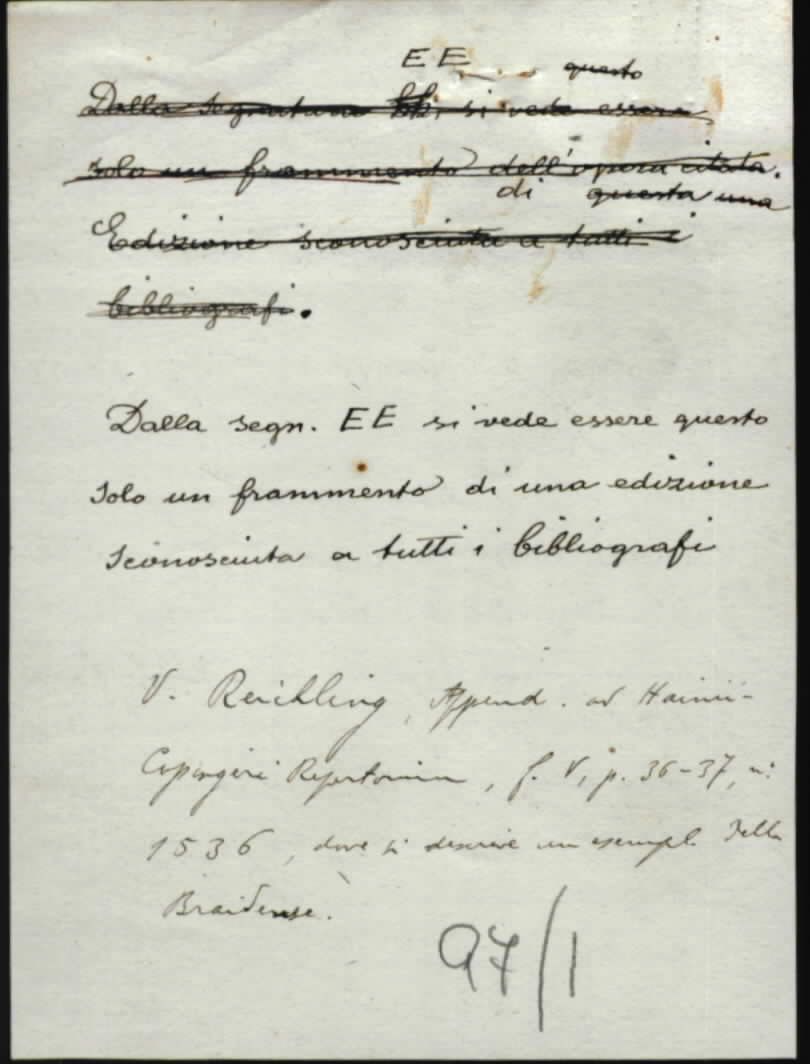 EE questo
Dalla segnatura si vede essere
solo un frammento dell'opera citata.
di questa una
Edizione sconosciuta a tutti i
bibliografi.
Dalla segn. EE si vede essere questo
solo un frammento di una edizione
sconosciuta a tutti i bibliografi
V. Reichling, Append. ad Hainii-
Copingeri Repertorium, f. V, p. 36-37, n:
1536, dove si descrive un esempl. della
Braidense.
97/1